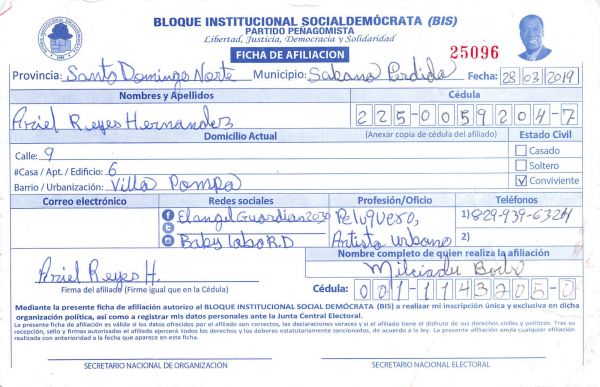 BLOQUE INSTITUCIONAL SOCIALDEMÓCRATA (BIS)
PARTIDO PEÑAGOMISTA
Libertad, Justicia, Democracia y Solidaridad
FICHA DE AFILIACION
25096
Provincia: Santo Domingo Norte Municipio: Sabana Perdida Fecha: 28 03 2019
Nombres y Apellidos Cédula
Ariel Reyes Hernandez 225-0059204-7
Domicilio Actual (Anexar copia de cédula del afiliado) Estado Civil
Calle: 9 Casado
#Casa / Apt. / Edificio: 6 Soltero
Barrio / Urbanización: Villa Pompa Conviviente
Correo electrónico Redes sociales Profesión/Oficio Teléfonos
Elangel Guardian2030 Peluquero, 1) 829-939-6324
Baby laboR.D Artista Urbano 2)
Nombre completo de quien realiza la afiliación
Ariel Reyes H.
Firma del afiliado (Firme igual que en la Cédula) Cédula: 001-1143205-0
Mediante la presente ficha de afiliación autorizo al BLOQUE INSTITUCIONAL SOCIAL DEMÓCRATA (BIS) a realizar mi inscripción única y exclusiva en dicha
organización política, así como a registrar mis datos personales ante la Junta Central Electoral.
La presente ficha de afiliación es válida si los datos ofrecidos por el afiliado son correctos, las declaraciones veraces y si el afiliado tiene el disfrute de sus derechos civiles y políticos. Tras su
recepción, sello y firmas autorizadas el afiliado ejercerá todos los derechos y los deberes estatutariamente sancionados, de acuerdo a la ley. La presente afiliación anula cualquier afiliación
realizada con anterioridad a la fecha que aparece en esta ficha.
SECRETARIO NACIONAL DE ORGANIZACIÓN SECRETARIO NACIONAL ELECTORAL